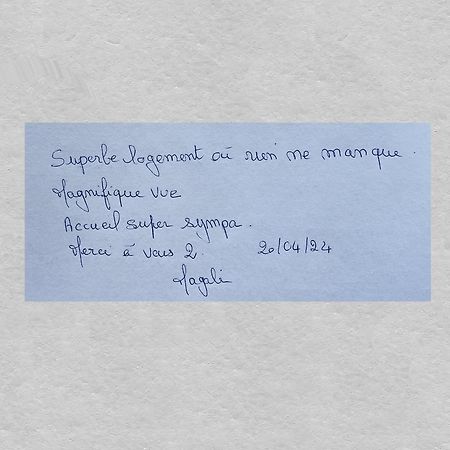 Superbe logement où rien ne manque.
Magnifique vue
Accueil super sympa.
Merci à vous 2. 20/04/24
Magali